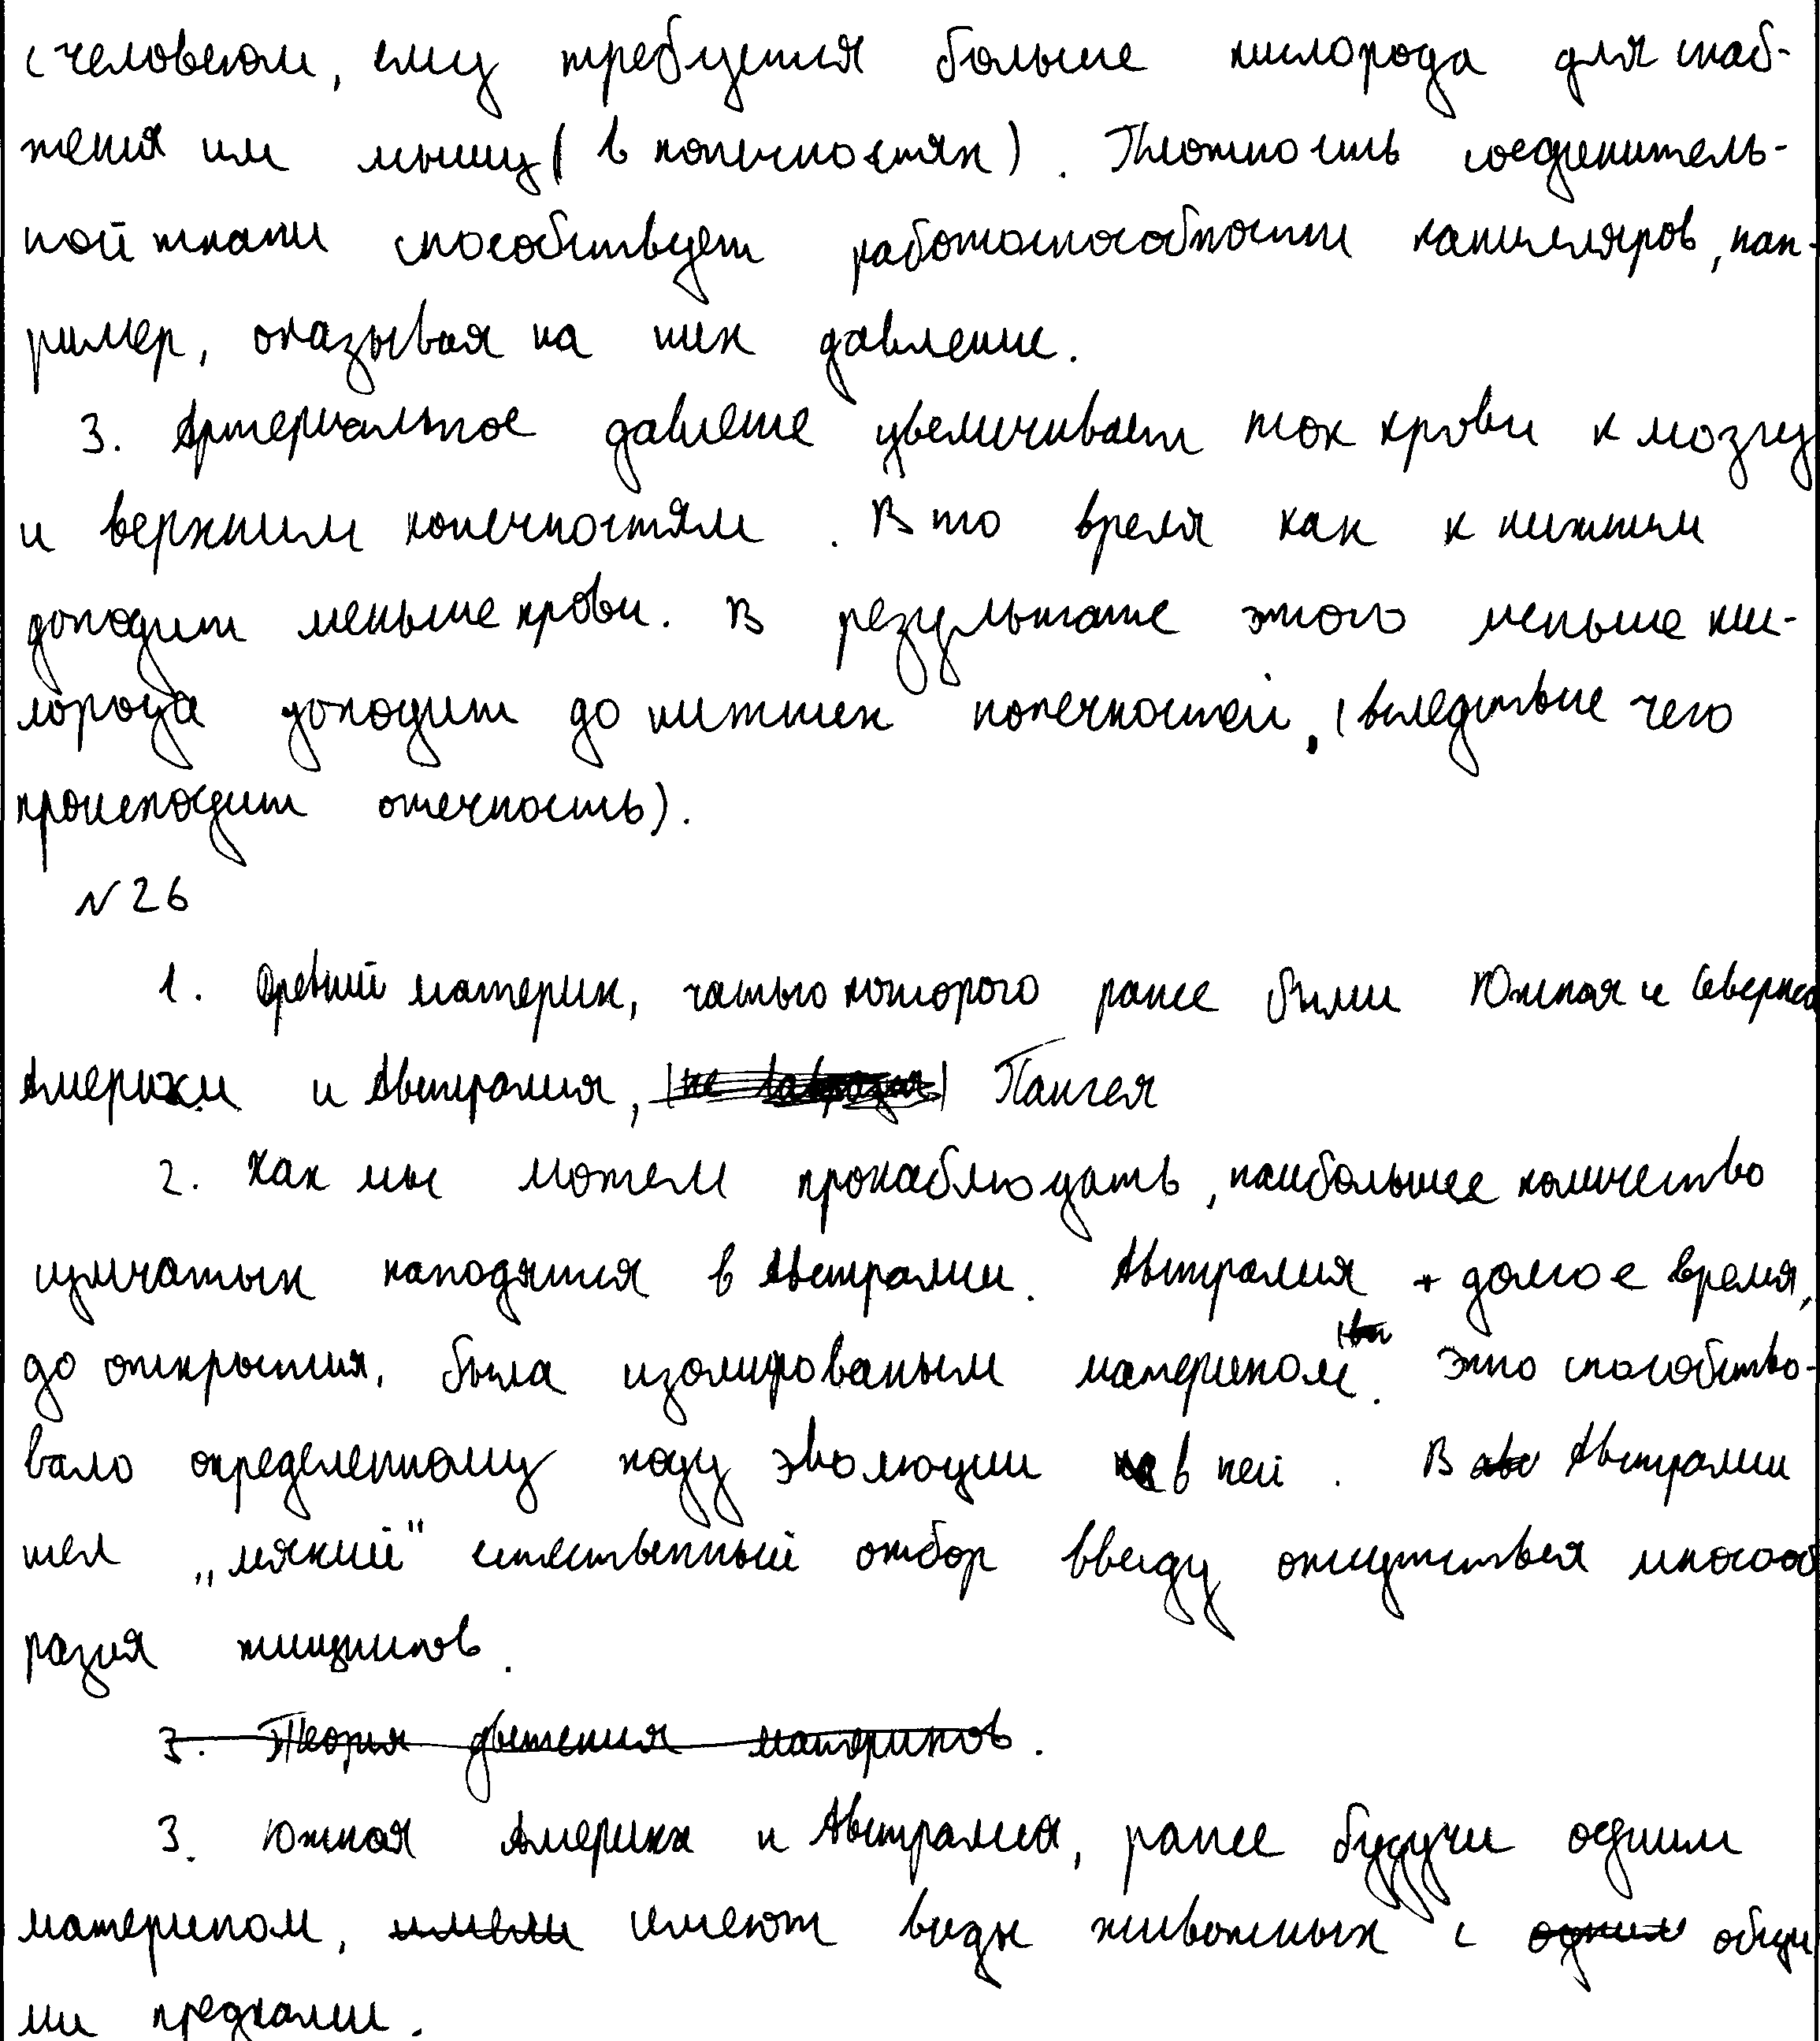 с человеком, ему требуется больше кислорода для снаб-
жения им мышц (в конечностях). Плотность соединитель-
ной ткани способствует работоспособности капилляров, нап-
ример, оказывая на них давление.
3. Артериальное давление увеличивает ток крови к мозгу
и верхним конечностям. В то время как к нижним
доходит меньше крови. В результате этого меньше кис-
лорода доходит до нижних конечностей, (вследствие чего
происходит отечность).
N 26
1. Древний материк, частью которого ранее были Южная и Северная
Америки и Австралия, Пангея
2. Как мы можем пронаблюдать, наибольшее количество
сумчатых находятся в Австралии. Австралия долгое время,
до открытия, была изолированым материком. Это способство-
вало определенному ходу эволюции в ней. В Австралии
шел „мягкий" естественный отбор ввиду отсутствия многооб
разия хищников.
3. Теория движения материков.
3. Южная Америка и Австралия, ранее будучи одним
материком, имели имеют виды животных с одним общи
ми предками.